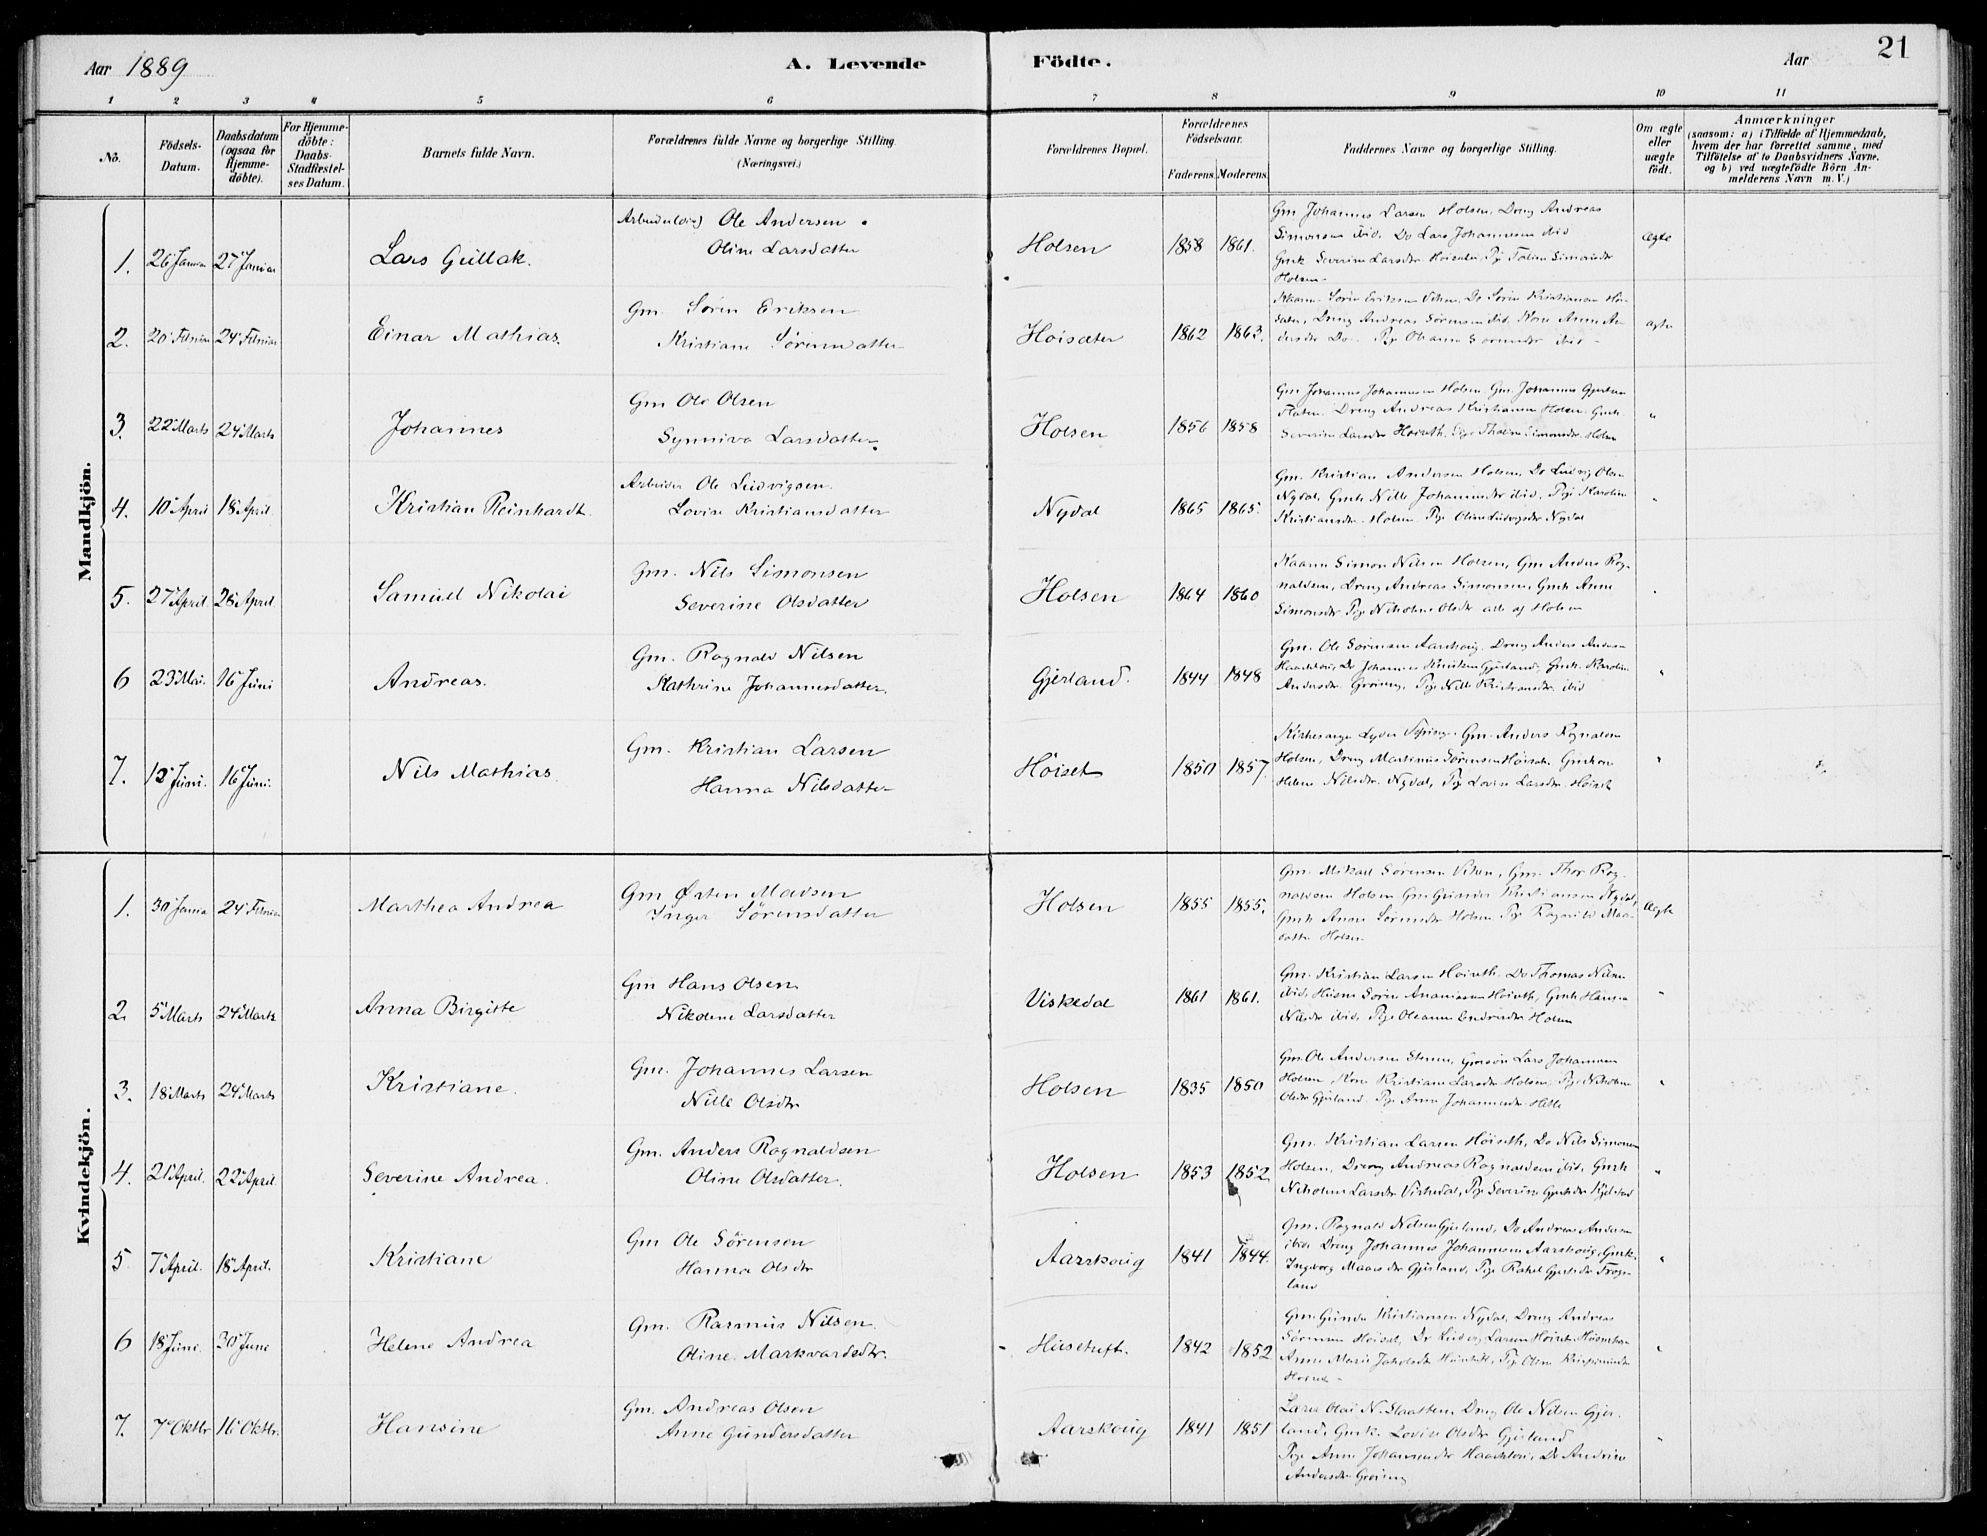 Aar 1889
A. Levende
Födte.
Aar
21
1 2 3 4 5 6 7 8 9 10 11
No.
Födsels-
Datum.
Daabsdatum
(ogsaa for
Hjemme-
döbte).
For Hjemme-
döbte:
Daabs-
Stadfæstel-
ses Datum.
Barnets fulde Navn.
Forældrenes fulde Navne og borgerlige Stilling
(Næringsvei.)
Forældrenes Bopæl.
Forældrenes
Födselsaar.
Faderens. Moderens.
Faddernes Navne og borgerlige Stilling.
Om ægte
eller
uægte
födt.
Anmærkninger
(saasom: a) i Tilfælde af Hjemmedaab,
hvem der har forrettet samme, med
Tilföielse af to Daabsvidners Navne.
og b) ved uægtefödte Börn An-
melderens Navn m. V.)
Mandkjön.
1. 26 Januar 27 Januar
Lars Gullak.
Ole Andersen
Oline Larsdatter
Holsen 1858 1861.
Gm Johannes Larsen Holsen, Dreng Andreas
Simonsen ibid, Do Lars Johannesen ibid
Gmk Severine Larsdtr
Holsen
ægte
2. 20 Februar 24 Februar
Einar Mathias.
Gm. Sören Eriksen
Kristiane Sörensdatter
Hoisæter 1862 1863.
ægte
3. 22 Marts 24 Marts
Johannes
Gm Ole Olsen
Synniva Larsdatter
Holsen 1856 1858
Gm Johannes Johannesen Holsen Gm. Johannes
Dreng Andreas Kristiansen Holsen. Gmk.
Severine Larsdtr Simonsdtr. Holsen
"
4. 10 April 18 April
Kristian Reinhardt.
Arbeider Ole Ludvigsen
Lovise Kristiansdatter
Nydal 1865 1865.
Gm. Kristian Andersen Holsen, Do Ludvig Olsen
Nydal, Gmk Nille Johannesdtr ibid, Pige Karoline
Kristiansdtr. Holsen Pige Oline Ludvigsdtr Nydal
"
5. 27 April. 28 April
Samuel Nikolai
Gm. Nils Simonsen
Severine Olsdatter
Holsen 1864 1860
Simon Nilsen Holsen, Gm Anders Rog-
naldsen, Dreng Andreas Simonsen, Gmk Anne
Simonsdtr Pige Nikoline Olsdtr alle af Holsen
"
6 23 Mai. 16 Juni
Andreas.
Gm. Rognald Nilsen
Kathrine Johannesdatter
Gjerland. 1844 1848
Gm. Ole Sörensen Aarskoug. Dreng Anders Andersen
Do Johannes Gjerland, Gmk. Karoline
Andersdtr. Gröning, Pige Nille Kristiansdtr. ibid
"
7. 12 Juni. 16 Juni.
Nils Mathias.
Gm. Kristian Larsen
Hanna Nilsdatter
Höiset 1850 1857.
Kirkesanger Gm. Anders Rognaldsen
Holsen, Dreng Martinus Sörensen Höiset. Gmkone
Helene Nilsdtr. Nydal, Pige Lovise Larsdtr. Höiset
"
Kvindekjön.
1. 30 Januar 24 Februar
Marthea Andrea
Gm Østen Madsen
Inger Sörensdatter
Holsen 1855 1855.
Gm. Mikael Sörensen Viken, Gm. Thor Rog-
naldsen Holsen Gm Gunder Kristiansen Nydal,
Gmk Anne Sörensdtr Holsen Pige Rognild Mads-
datter Holsen
Ægte
2. 5 Marts 24 Marts
Anna Birgitte
Gm Hans Olsen
Nikoline Larsdatter
Viskedal 1861 1861.
Gm. Kristian Larsen Höiseth. Do Thomas Nilsen
ibid, Husm Sören Ananiassen Höiseth, Gmk Hanna
Nilsdtr ibid, Pige Oleanna Holsen
"
3. 18 Marts 24 Marts
Kristiane.
Gm. Johannes Larsen
Nille Olsdtr
Holsen 1835 1850
Gm. Ole Andersen Gmsön Lars Johannesen
Holsen, Kone Kristiane Larsdtr Holsen, Pige Nikoline
Olsdtr Gjerland. Pige Anne Johannesdtr Helle
"
4. 21 April. 22 April
Severine Andrea.
Gm. Anders Rognaldsen
Oline Olsdatter.
Holsen 1853 1852
Gm. Kristian Larsen Höiseth, Do Nils Simonsen
Holsen, Dreng Andreas Rognaldsen ibid, Gmk
Nikoline Larsdtr Viskedal, Pige Severine
"
5 7 April. 18 April.
Kristiane
Gm Ole Sörensen
Hanna Olsdtr
Aarskoug 1841 1844.
Gm. Rognald Nilsen Gjerland, Do Andreas Andersen
ibid. Dreng Johannes Johannesen Aarskoug, Gmk.
Ingeborg Gjerland, Pige Rakel
land
"
6 18 Juni. 30 June
Helene Andrea
Gm. Rasmus Nilsen
Oline Markvardsdtr.
Husetuft. 1842 1852
Gm. Gunder Kristiansen Nydal, Dreng Andreas
Sörensen Höiset, Do Ludvig Larsen Höiset,
Anne Marie Jakobsdtr
"
7. 7 Oktbr 16 Oktbr.
Hansine
Gm. Andreas Olsen
Anne Gundersdatter
Aarskoug 1841 1851
Dreng Ole Nilsen Gjer-
land, Gmk. Lovise Olsdtr Gjerland
Pige Anne Johannesdtr Do Andrine
Andersdtr Gröning
"